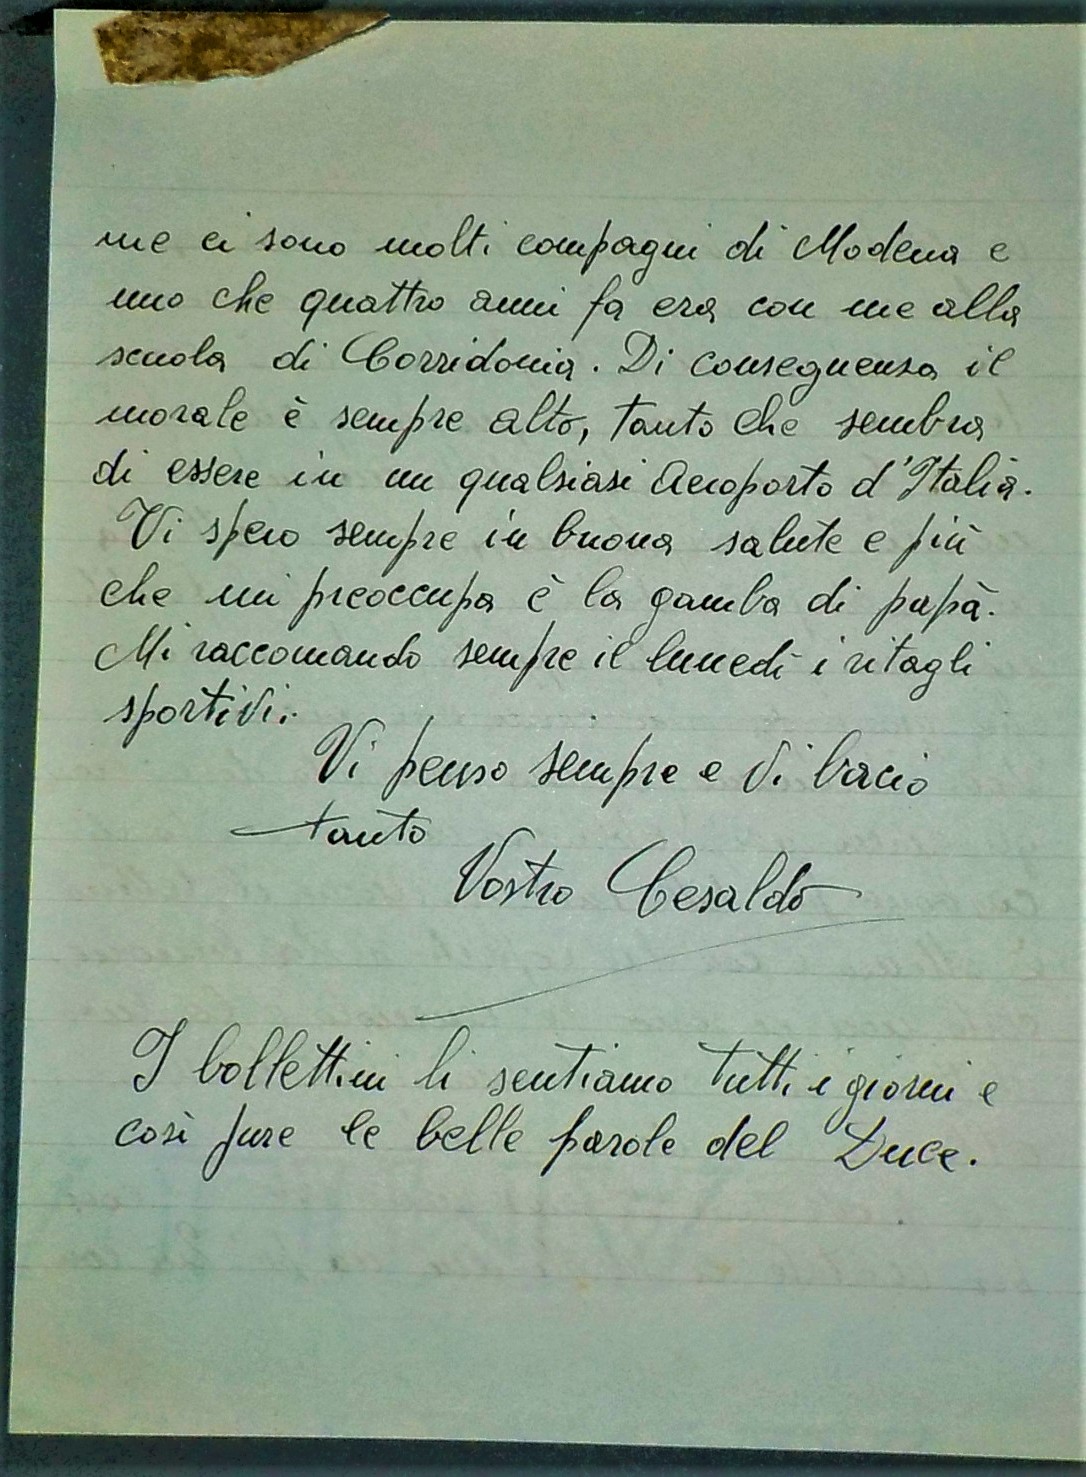 me ci sono molti compagni di Modena e
uno che quattro anni fa era con me alla
scuola di Corridonia. Di conseguenza il
morale è sempre alto, tanto che sembra
di essere in un qualsiasi Aeroporto d'Italia.
Vi spero sempre in buona salute e più
che mi preoccupa è la gamba di papà.
Mi raccomando sempre il lunedì i ritagli
sportivi.
Vi penso sempre e vi bacio
tanto
Vostro Cesaldo
I bollettini li sentiamo tutti i giorni e
così pure le belle parole del Duce.